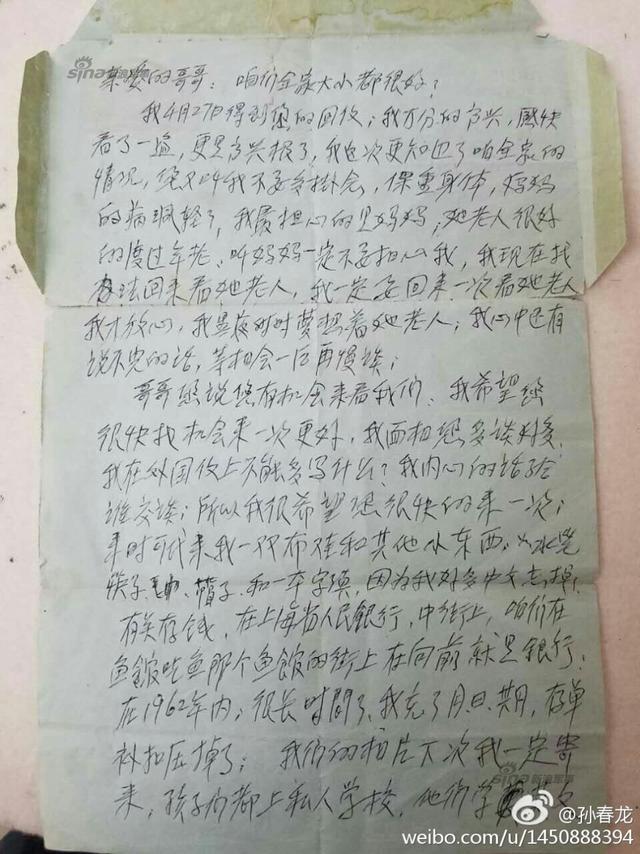 亲爱的哥哥：咱们全家大小都很好？
我4月27日得到您的回收；我万分的高兴，
看了一遍，更是高兴极了，我这次更知道了咱全家的
情况，您又叫我不要多掛念，保重身体，妈妈
的病 轻了，我最担心的是妈妈，她老人很好
的度过年老，叫妈妈一定不要担心我，我现在找
办法回来看她老人，我一定要回来一次看她老人
我才放心，我是夜时时梦想着她老人；我心中还有
说不完的话，等相会一后再慢谈；
哥哥您说您有机会来看我们，我希望您
很快找机会来一次更好，我面相您多谈好多，
我在外国仗上不能多写什么？我内心的话了给
谁交谈；所以我很希望您很快的来一次；
来时可代来我一双布鞋和其他小东西，
筷子 帽子，和一本字 ，因为我好多中文忘掉，
有关存钱，在上海省人民銀行，中街上，咱们在
鱼館吃鱼那个鱼館的街上在向前就是銀行；
在1962年内；很长时間了，我忘了月、日、期，存单
被扣压掉了；我们的相片下次我一定寄
来，孩子们都上私人学校，他们学
sina 新浪军事
sina 新浪军事
@孙春龙
weibo.com/u/1450888394